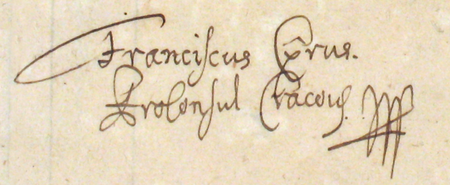 Franciscus Cyrus.
Proconsul Cracouĵ